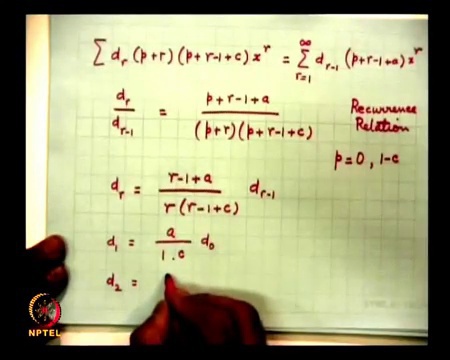 ∑ d_r (p+r) (p+r-1+c) x^r = ∑_{r=1}^{∞} d_{r-1} (p+r-1+a) x^r
d_r / d_{r-1} = (p+r-1+a) / ((p+r)(p+r-1+c))
Recurrence
Relation
p=0, 1-c
d_r = (r-1+a) / (r(r-1+c)) d_{r-1}
d_1 = a / (1.c) d_0
d_2 =
NPTEL